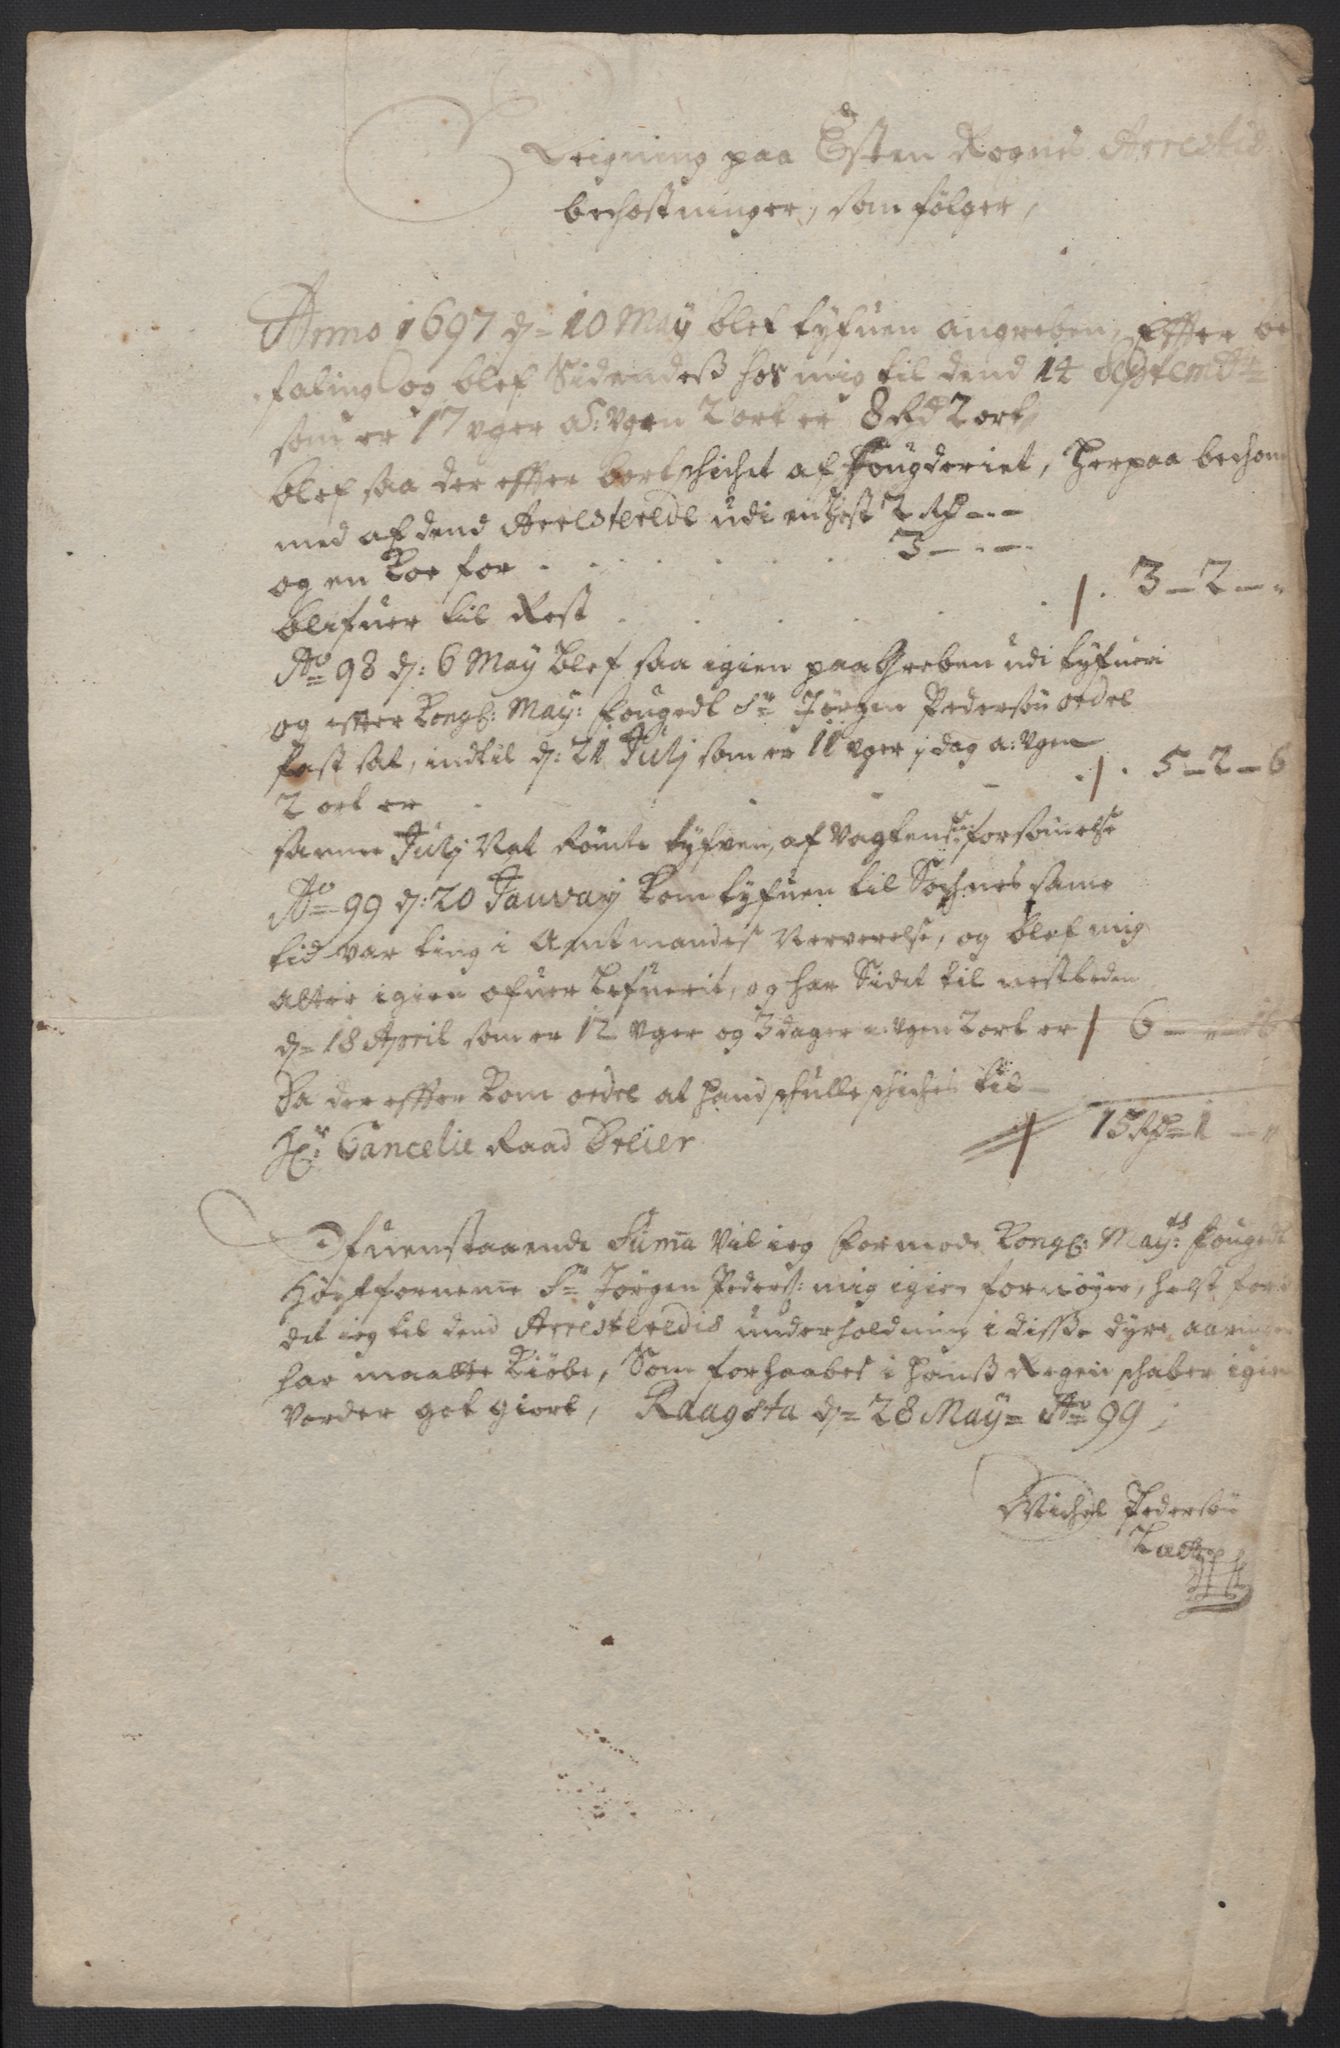 Reigning paa Esten Rognes Arrestis
bechostninger, som følger,
Anno 1697 d= 10 May blef tyfuen angreben, effter be
faling og blef Sidendeß hos mig til dend 14 Septembr
som er 17 uger a: Ugen 2 ort er 8 Rd 2 ort
blef saa der effter bortschichet af Fougderiet, herpaa bechom
med af dend Arresterede udi en Hest 2 Rd - - -
og en Koe for . . . . . . 3 - - -
blifuer til Rest . . . . . . 3 - 2 - "
Ao 98 d: 6 May blef saa igien paagreben udi tyfueri
og effter Kongl: May: Fougedt Sr Jørgen Pedersøn ordel
fast sat, indtil d: 21 Julj som er 11 uger j dag a: Ugen
2 ort er . . . . . 5 - 2 - 6
samme Julj Nat Rømte tyfven, af Vagtens forsømelse
Ao 99 d: 20 Januarj kom tyfuen til Sochnes same
tid var ting i Amtmandes Nerverelse, og blef mig
atter igien ofuer lefuerit, og har Sidet til nestleden
d= 18 April som er 12 uger og 3 dager a: Ugen 2 ort er 6 - " - 18
Da der effter kom ordel at hand schulle schiches til
Hr: Cancelie Raad Dreier 15 Rd - 1 - "
Ofuenstaaende Suma Vil ieg formode Kongl: Mayts: Fougedt
Høytfornemme Sr Jørgen Peders: mig igien fornøyer, helst fordi
det ieg til dend Arresteredis underholdning i disse dyre aaringer
har maatte Kiøbe, Som forhaabes i hanß Regenschaber igien
Vorder got giort, Raagsta d= 28 May= Ao 99 ;
Michel Pedersøn